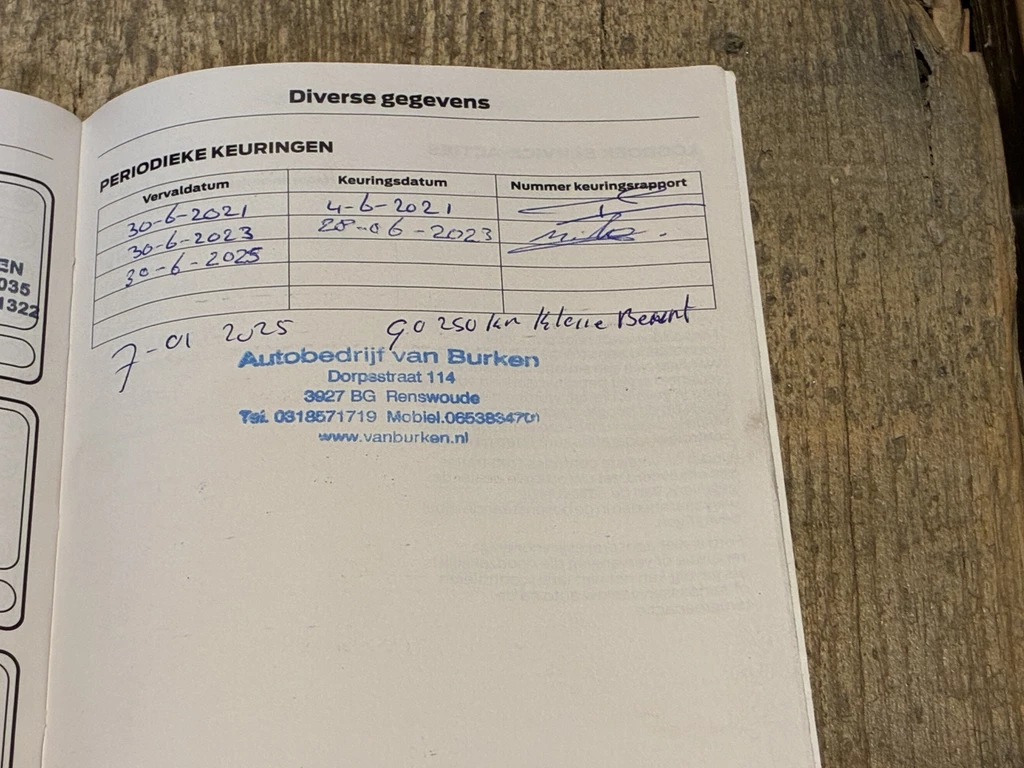 Diverse gegevens
PERIODIEKE KEURINGEN
Vervaldatum Keuringsdatum Nummer keuringsrapport
30-6-2021 4-6-2021
30-6-2023 28-06-2023
30-6-2025
7-01 2025 90250 km Kleine Beurt
Autobedrijf van Burken
Dorpsstraat 114
3927 BG Renswoude
Tel. 0318571719 Mobiel.
www.vanburken.nl
EN
035
1322